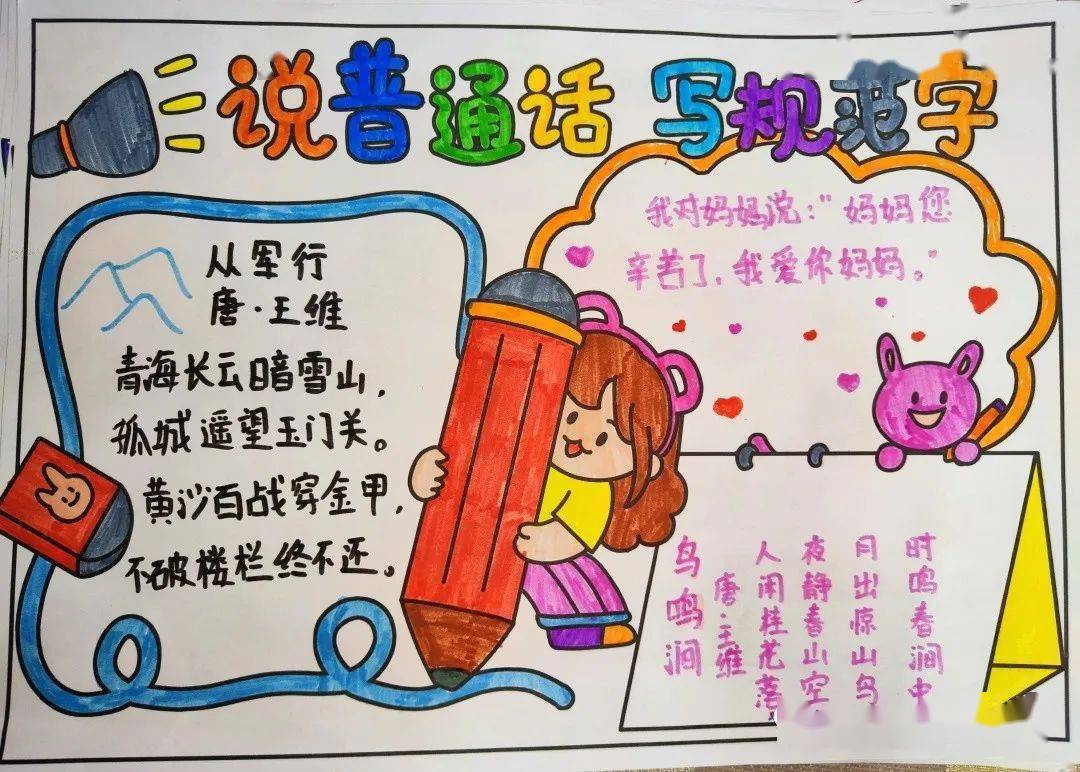 说普通话 写规范字
从军行
唐·王维
青海长云暗雪山，
孤城遥望玉门关。
黄沙百战穿金甲，
不破楼栏终不还。
我对妈妈说：“妈妈您
辛苦了，我爱你妈妈。”
鸟鸣涧
唐·王维
人闲桂花落
夜静春山空
月出惊山鸟
时鸣春涧中